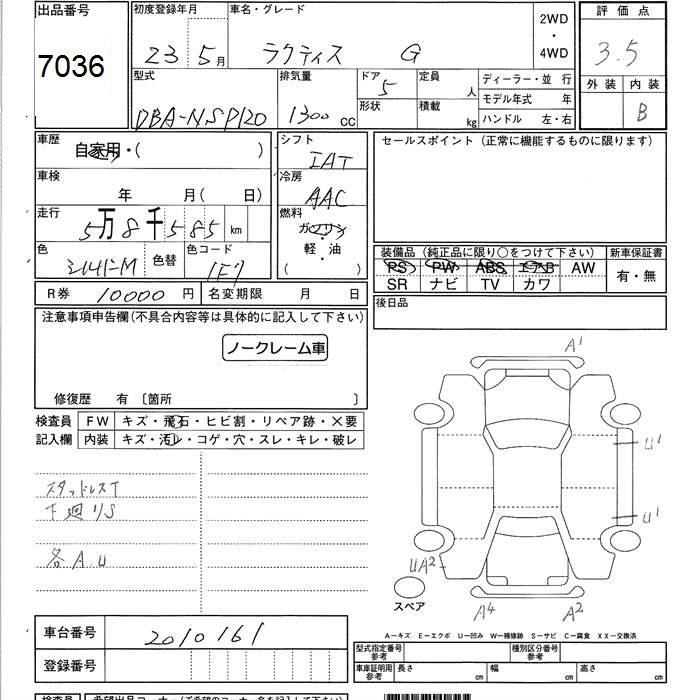 出品番号 初度登録年月 車名・グレード 2WD・4WD 評価点
7036 23 5月 ラクティス G 3.5
型式 排気量 ドア 5 定員 人 ディーラー・並行 外装 内装
DBA-NSP120 1300cc 形状 積載 kg モデル年式 年 B
ハンドル 左・右
車歴 自家用・( ) シフト IAT セールスポイント (正常に機能するものに限ります)
車検 年 月( 日) 冷房 AAC
走行 5万8千585km 燃料 ガソリン・軽・油 ( )
色 シルバーM 色替 色コード 1F7
装備品 (純正品に限り○をつけて下さい) 新車保証書
PS PW ABS エアB AW 有・無
SR ナビ TV カワ
R券 10000円 名変期限 月 日 後日品
注意事項申告欄(不具合内容等は具体的に記入して下さい)
ノークレーム車
修復歴 有 〔箇所 〕
検査員 FW キズ・飛石・ヒビ割・リペア跡・×要
記入欄 内装 キズ・汚レ・コゲ・穴・スレ・キレ・破レ
スタッドレスT
下廻りS
各A.U
A1
U1
U1
UA2
スペア
A4 A2
A-キズ E-エクボ U-凹み W-補修跡 S-サビ C-腐食 XX-交換済
車台番号 2010161
型式指定番号 参考 種別区分番号 参考
登録番号 車庫証明用 参考 長さ cm 幅 cm 高さ cm
検査員 希望出品コーナー (ご希望のコーナー名を記入下さい)